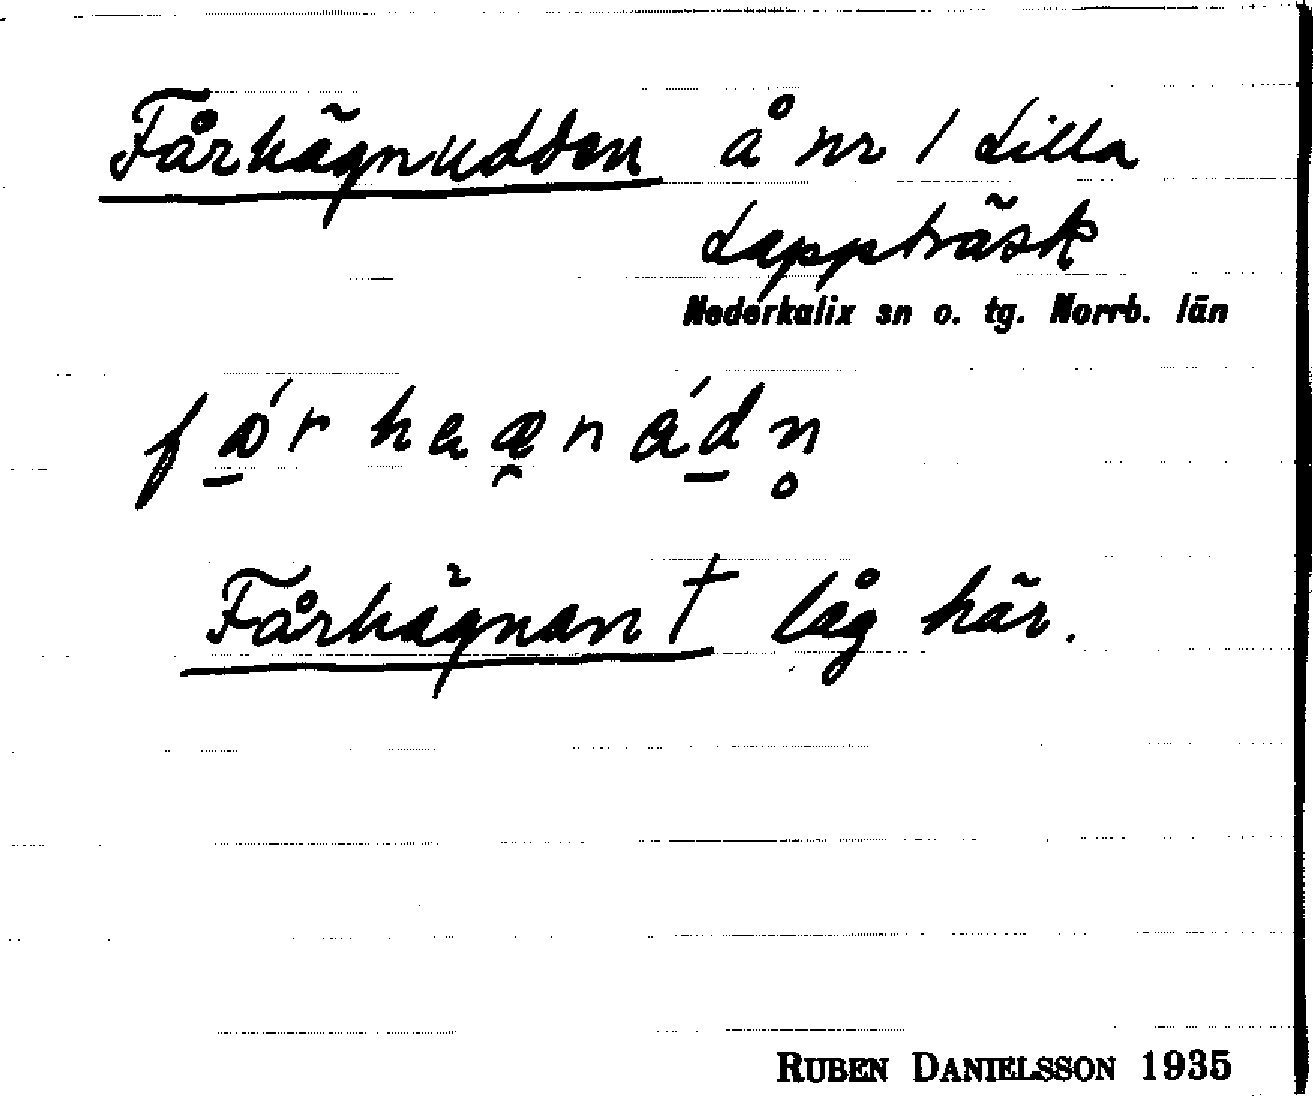 Fårhägnudden å nr 1 Lilla
Lappträsk
Nederkalix sn o. tg. Norrb. län
Fårhägnan † låg här.
RUBEN DANIELSSON 1935